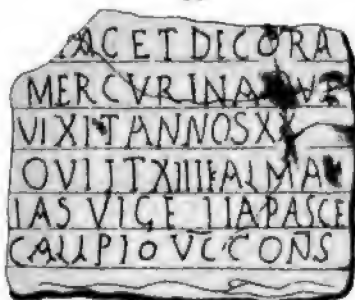 IACET DECORA
MERCVRINA QVE
VIXIT ANNOS XX
OVIIT XIIII KAL MA
IAS PASCE
CALIPIO VC CONS